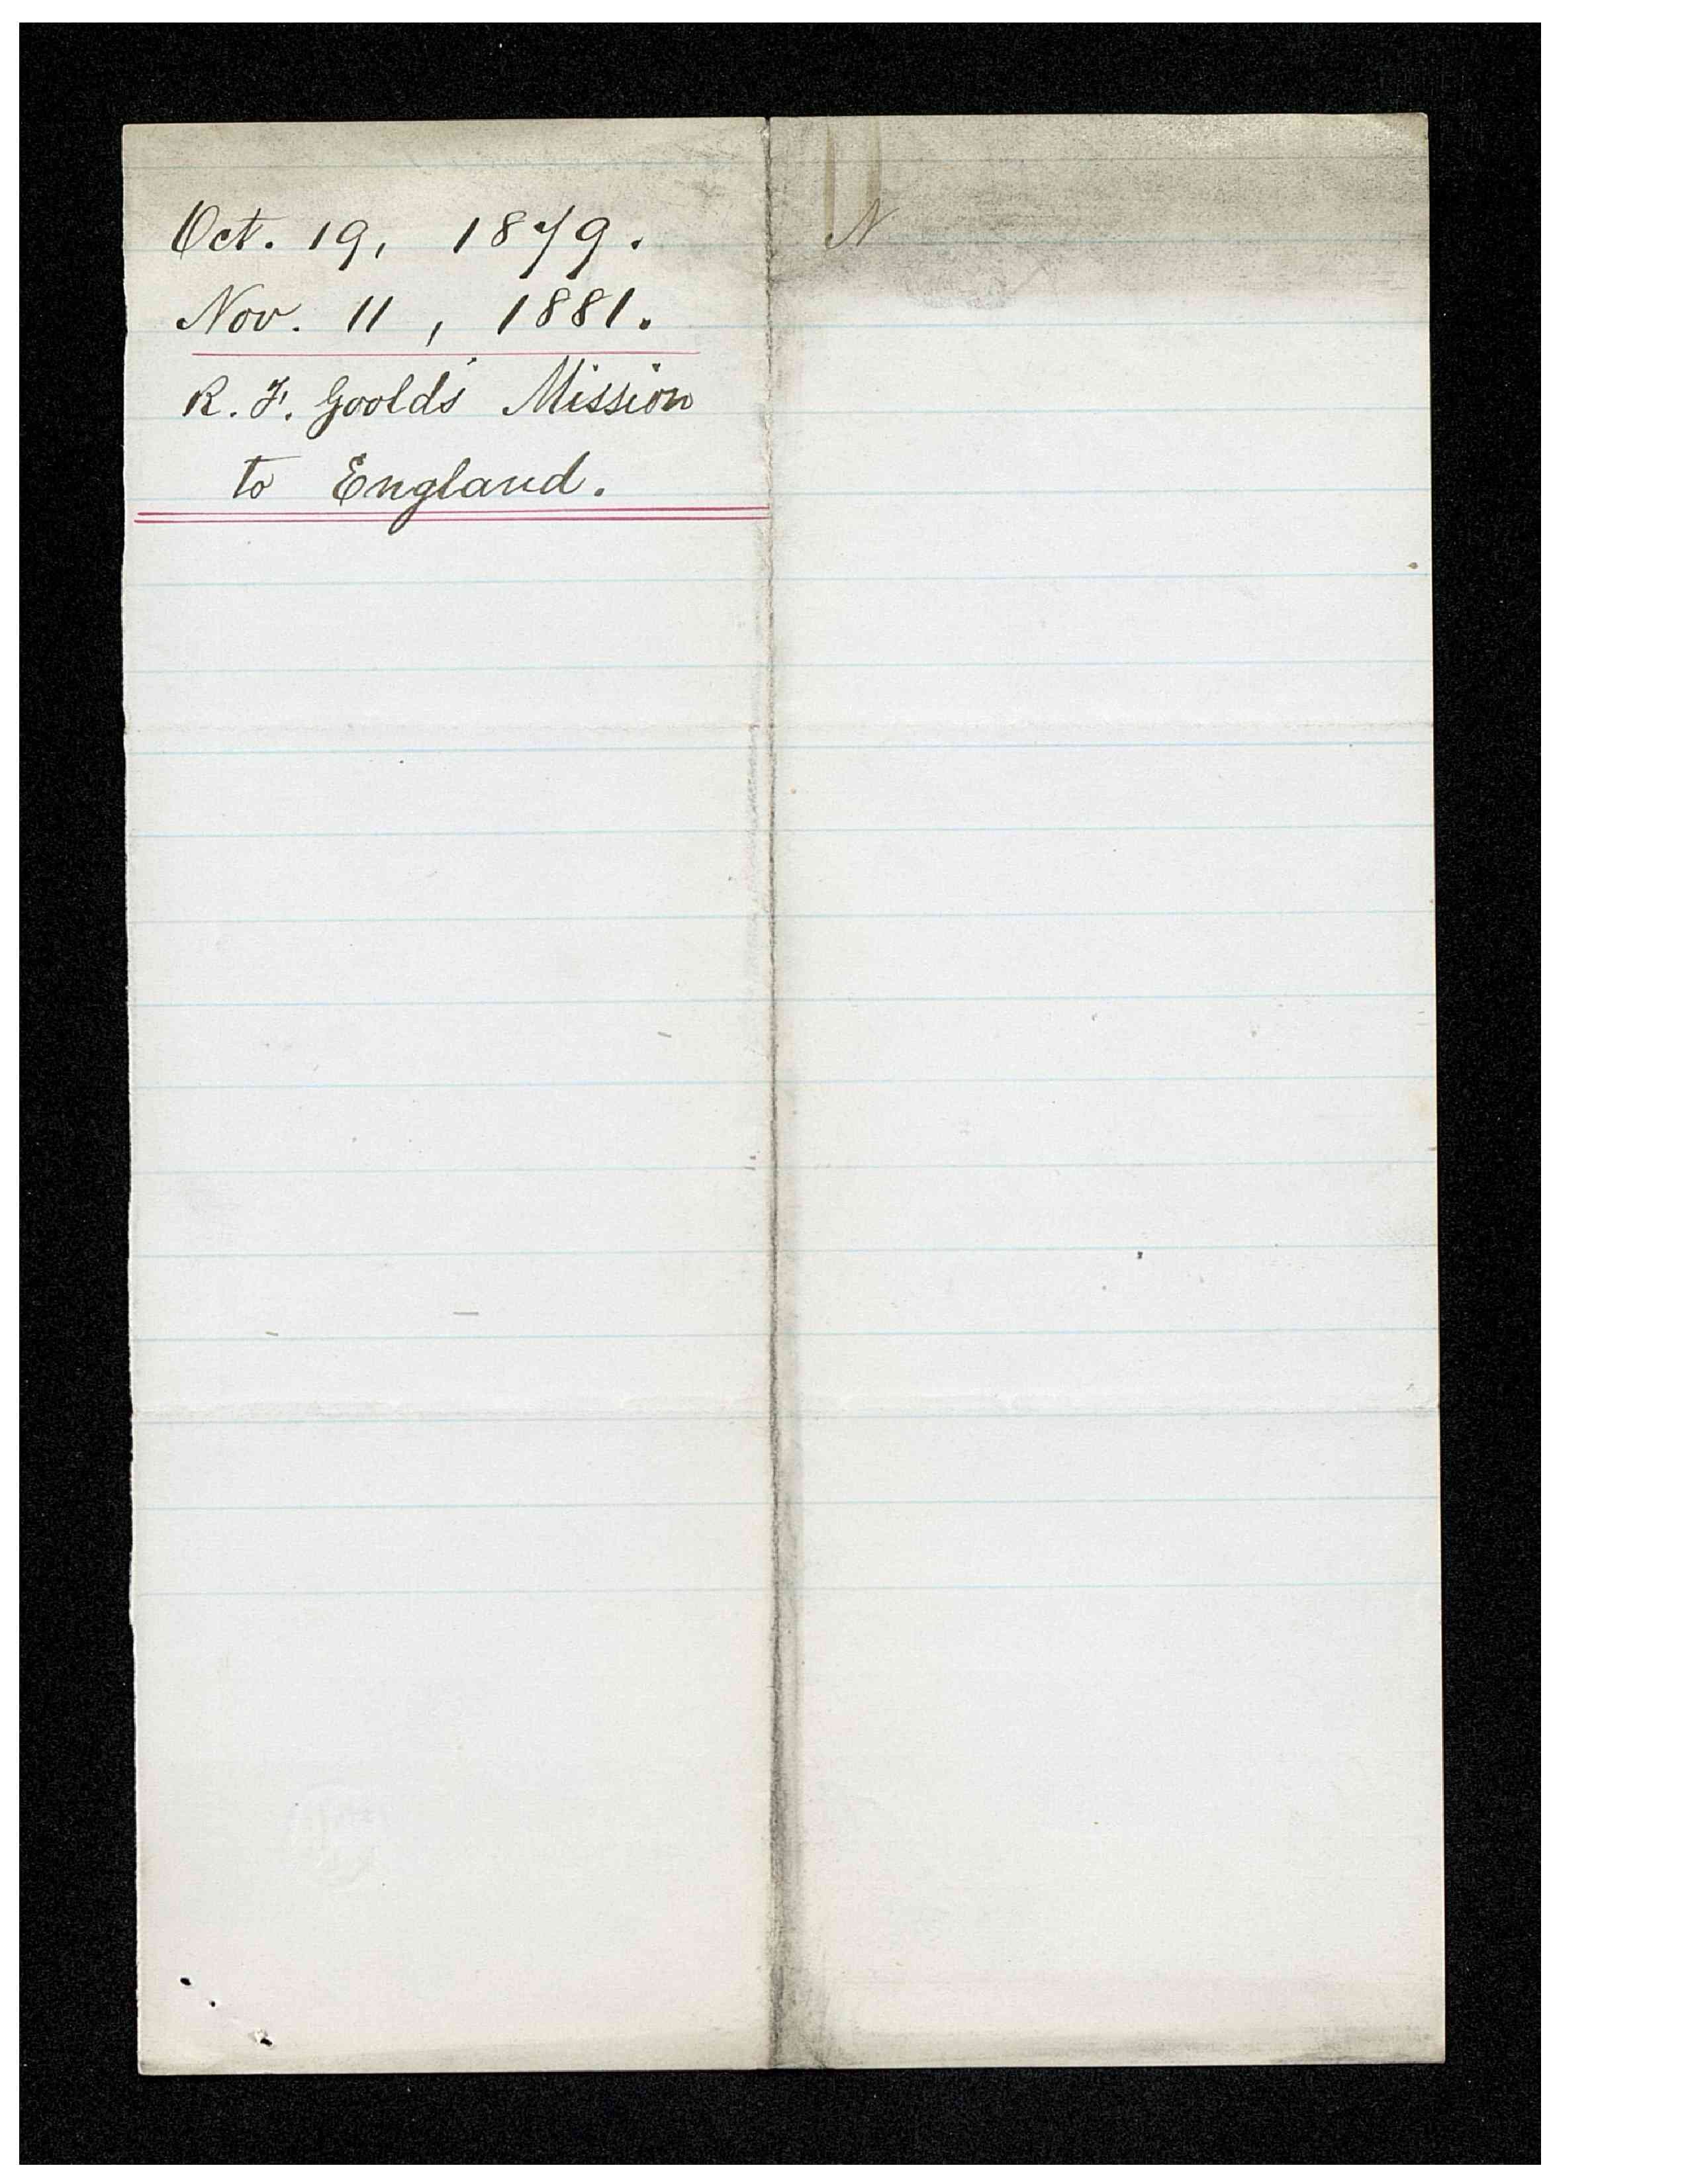 Oct. 19, 1879.
Nov. 11, 1881.
R. F. Goold's Mission
to England.
N